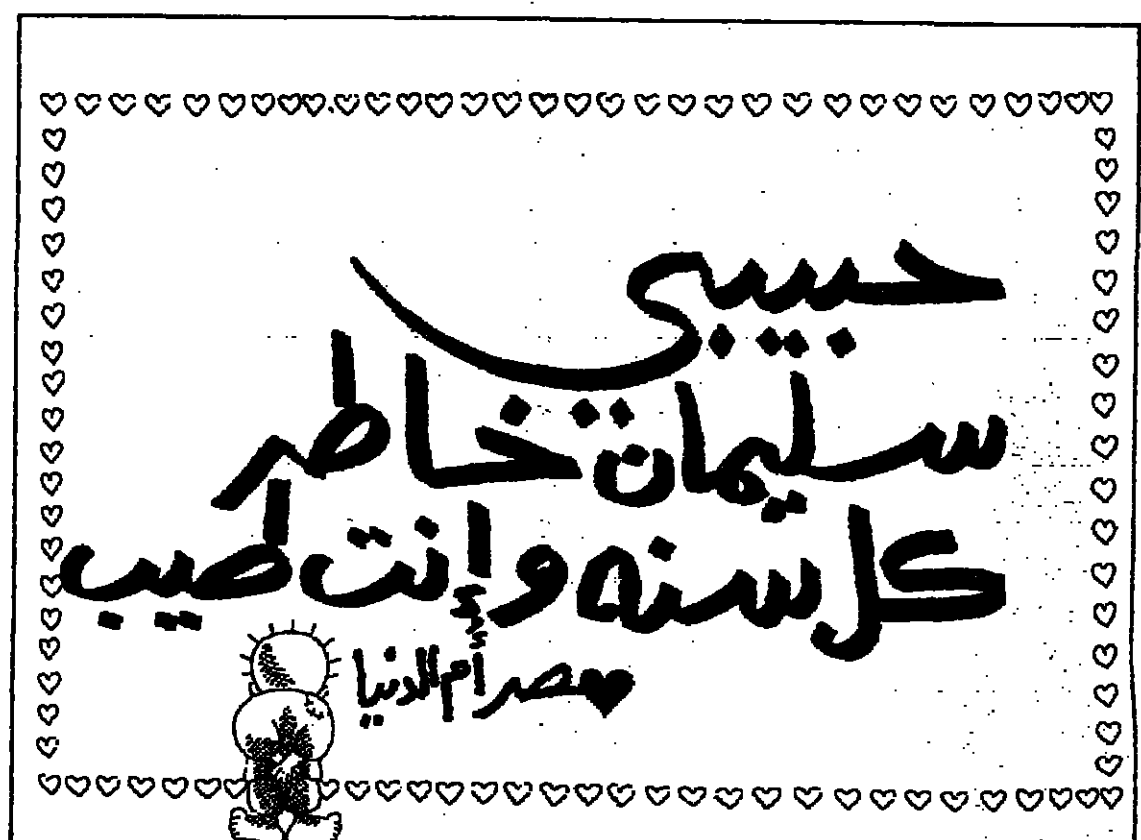 حبيبى
سليمان خاطر
كل سنه وانت طيب
مصر أم الدنيا